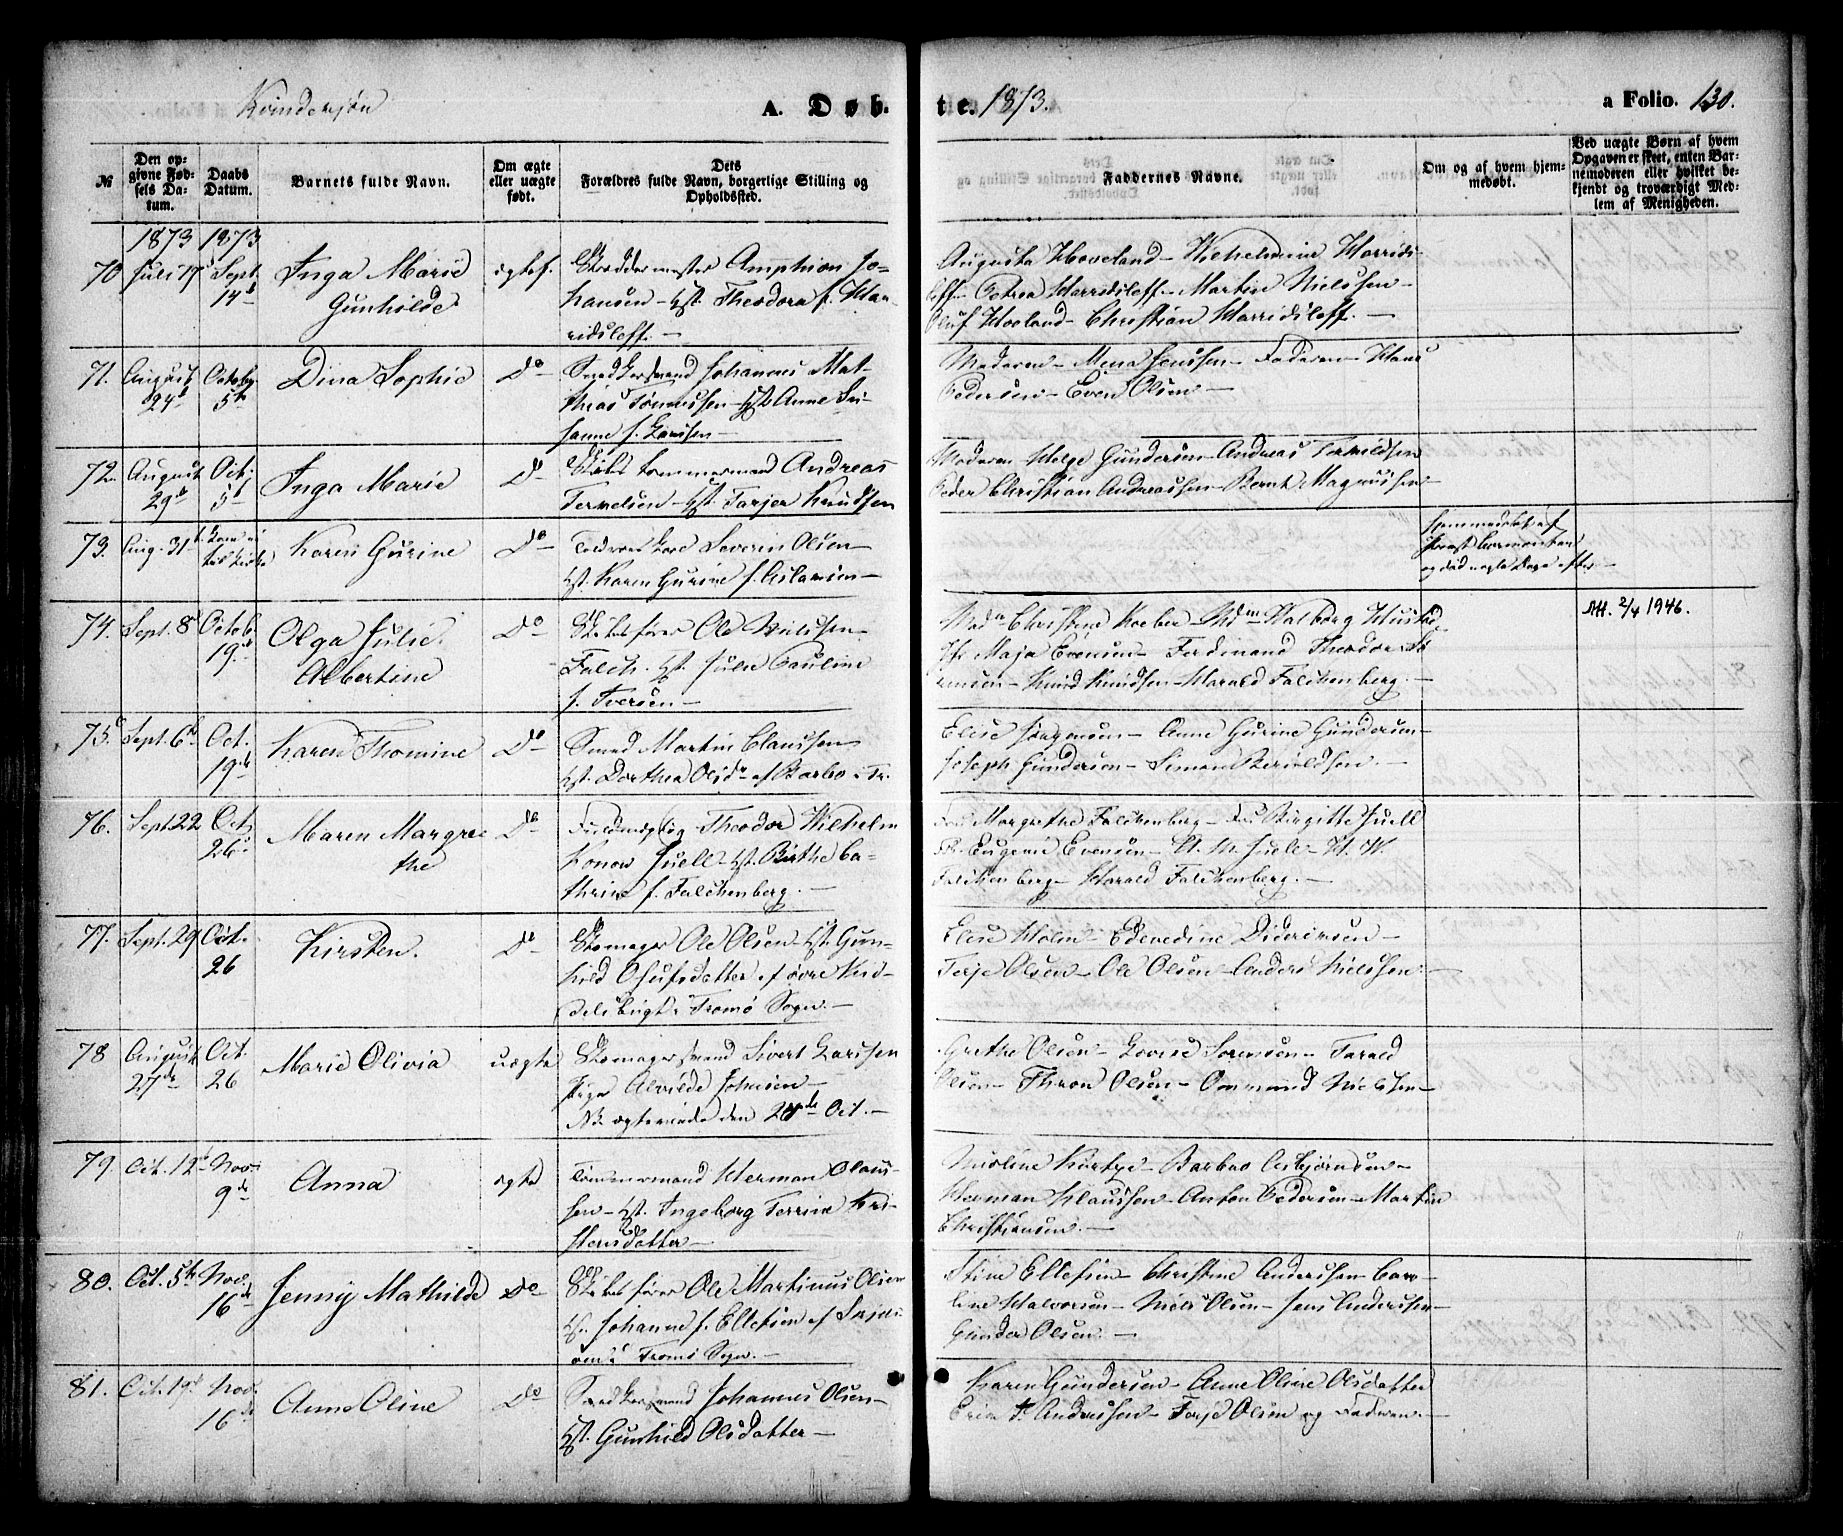 Kvindekjøn
A. Døb-
te. 1873.
a Folio. 130.
№
Den op-
givne Fød-
sels Da-
tum.
Daabs
Datum.
Barnets fulde Navn.
Om ægte
eller uægte
født.
Dets
Forældres fulde Navn, borgerlige Stilling og
Opholdssted.
Faddernes Navne.
Om og af hvem hjem-
medøbt.
Ved uægte Børn af hvem
Opgaven er skeet, enten Bar-
nemoderen eller hvilket be-
kjendt og troværdigt Med-
lem af Menigheden.
1873 1873
70 Juli 19 Sept. 14de
Inga Marie
Gunhilde
ægtef.
Amphion Jo-
hansen – Hst. Theodora f. Har-
ridsleff. –
Augusta Hoveland – Wilhelmine Harrids-
leff – Petrea Harridsleff – Martin Nielssen –
Oluf Hoeland – Christian Harridsleff. –
71. August 24de Octobr 5te
Dina Sophie
Do
Snedkersvend Johannes Mat-
thias Tønnessen – Hst. Anne Su-
sanne f. Larssen –
Moderen – Mena Jenssen – Faderen – Hans
Pedersen – Even Olsen –
72. August 29de Oct. 5te
Inga Marie
Do
Skibstømmermand Andreas
Termelsen – Hst. Tarjer Knudsen
Moderen Helge Gundersen – Andreas
Peder Christian Andreassen – Bernt Magnussen –
73. Aug. 31te
Karen Gurine
Do
Severin Olsen –
Hst. Karen Gurine f. Aslaksen –
hjemmedøbt af
Provst
og død nogle Dage efter –
74. Sept. 8de Octob. 19de
Olga Julie
Albertine
Do
Skibsfører Ole Nielssen
Falch. Hst. Julie Pauline
f. Iversen –
Christine Koeber – Mdm Walborg
Jfr Maja Evensen – Ferdinand Theodor
Knud Knudsen – Harald Falchenberg. –
M. 2/4 1946.
75. Sept. 6te Oct. 19de
Karen Thomine
Do
Smed Martin Claussen
Hst. Dorthea Olsdr af Barbo – Tr.
Elise Jørgensen – Anne Gurine Gundersen –
Joseph Gundersen – Simon
76. Sept. 22 Oct. 26de
Maren Margre-
the
Do
Fuldmægtig Theodor Wilhelm
Konow Juell – Hst. Birthe Ca-
thrine f. Falchenberg. –
Fru Margrethe Falchenberg – Fru Birgitte Juell
Fr. Eugenie Evensen – Juell – H. W.
Falchenberg – Harald Falchenberg. –
77. Sept. 29 Oct. 26
Kirsten.
Do
Skomager Ole Olsen – Hst. Gun-
hild Osufsdatter af øvre Kid-
delsbugt i Tromø Sogn. –
Elise Holm – Edevedine Diderimsen –
Terje Olsen – Ole Olsen – Anders Nielssen –
78 August 27de Oct. 26
Marie Olivia
uægte
Skomagersvend Sivert Larssen
Pige Alvilde Johnsen –
NB. ægteviede den 24de Oct. –
Grethe Olsen – Lovise Sørensen – Tarald
Olsen – Thron Olsen – Ommund Nielssen –
79. Oct. 12te Nov. 9de
Anna
ægte
Tømmermand Herman Claus-
sen – Hst. Ingeborg Terrine Kri-
stensdatter –
Nicoline – Barbro Asbjørnsen –
Herman Klaussen – Anton Pedersen – Martin
Christiansen. –
80. Oct. 5te Nov. 16de
Jenny Mathilde
Do
Skibsfører Ole Martinus Olsen
Hst. Johanne f. Ellefsen af
i Tromø Sogn. –
Stine Ellefsen – Christine Anderssen – Caro-
line Halvorsen – Niels Olsen – Jens Anderssen –
Gunder Olsen. –
81. Oct. 19de Nov. 16de
Anne Oline
Do
Snedkersvend Johannes Olsen –
Hst. Gunhild Olsdatter –
Karen Gundersen – Anne Oline Olsdatter
Andersen – Terje Olsen og Faderen. –